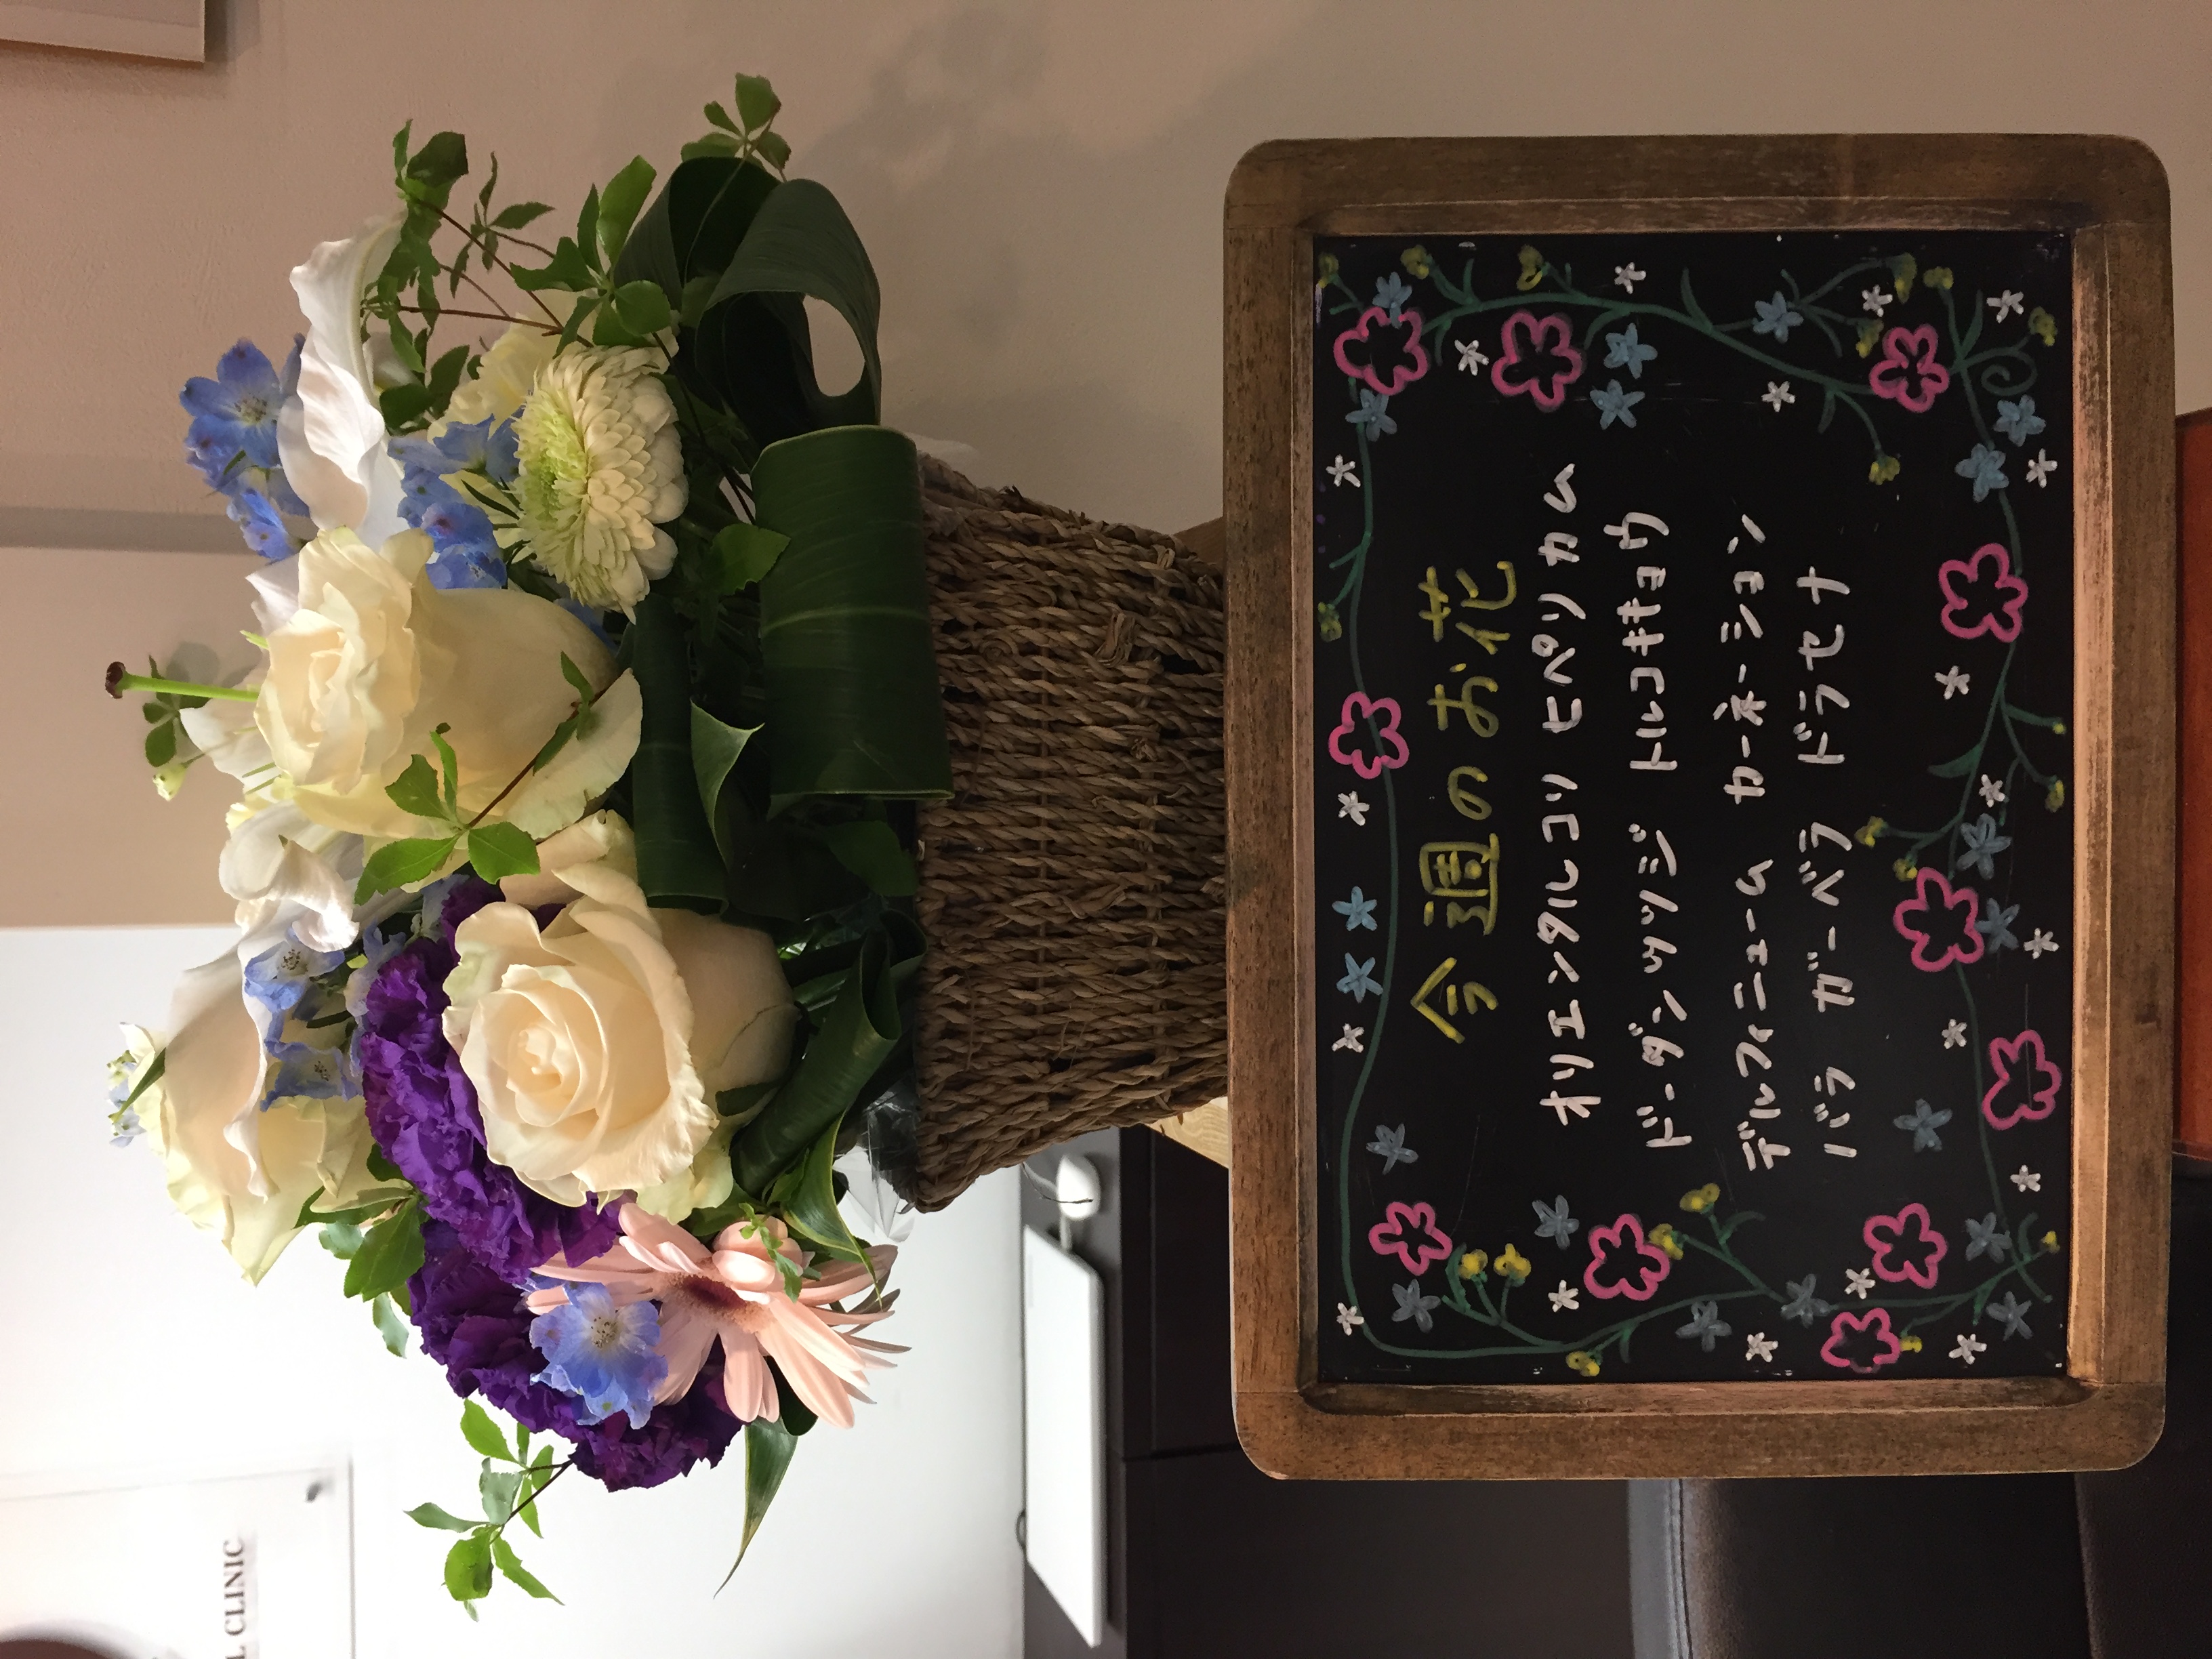 今週のお花
オリエンタルコリ ヒペリカム
ドーダンツツジ トルコキキョウ
デルフィニューム カーネーション
バラ ガーベラ ドラセナ
L CLINIC